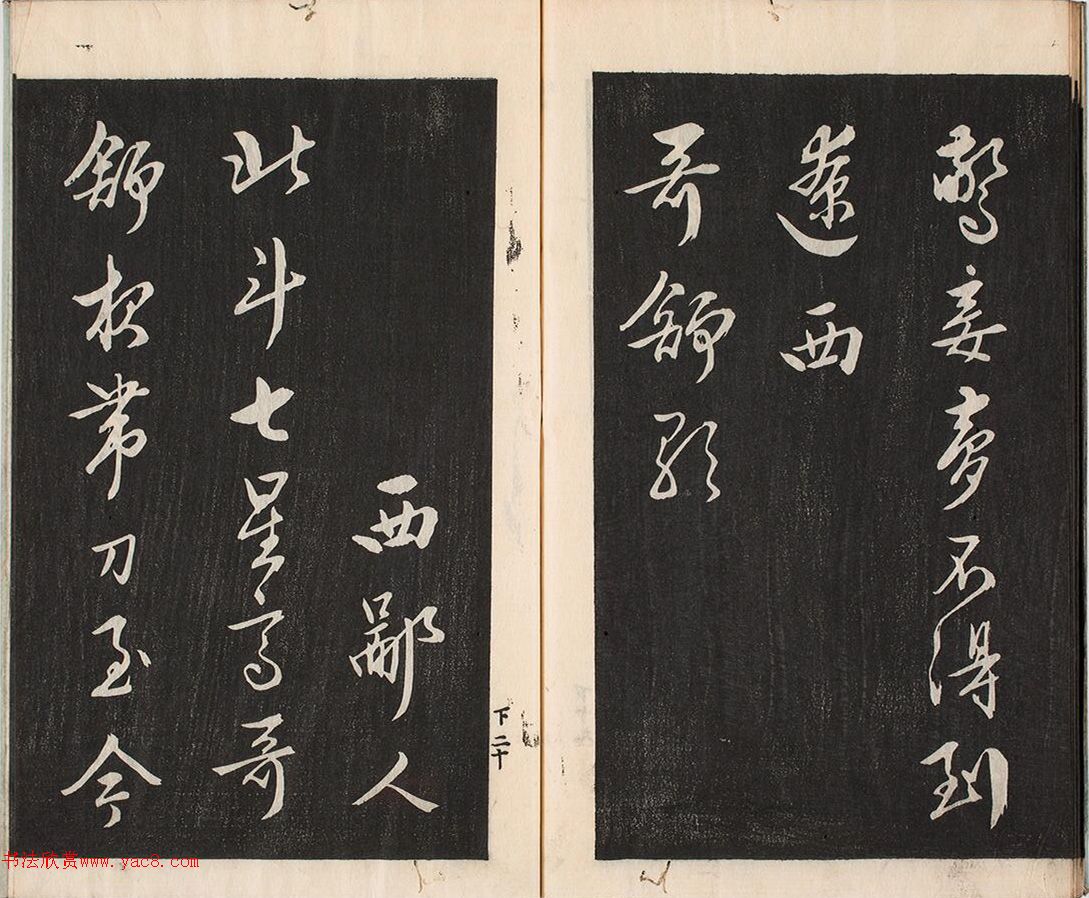 驚妾夢不得到
遼西
哥舒歌
西鄙人
北斗七星高哥
舒夜帶刀至今
下二十
书法欣赏www.yac8.com